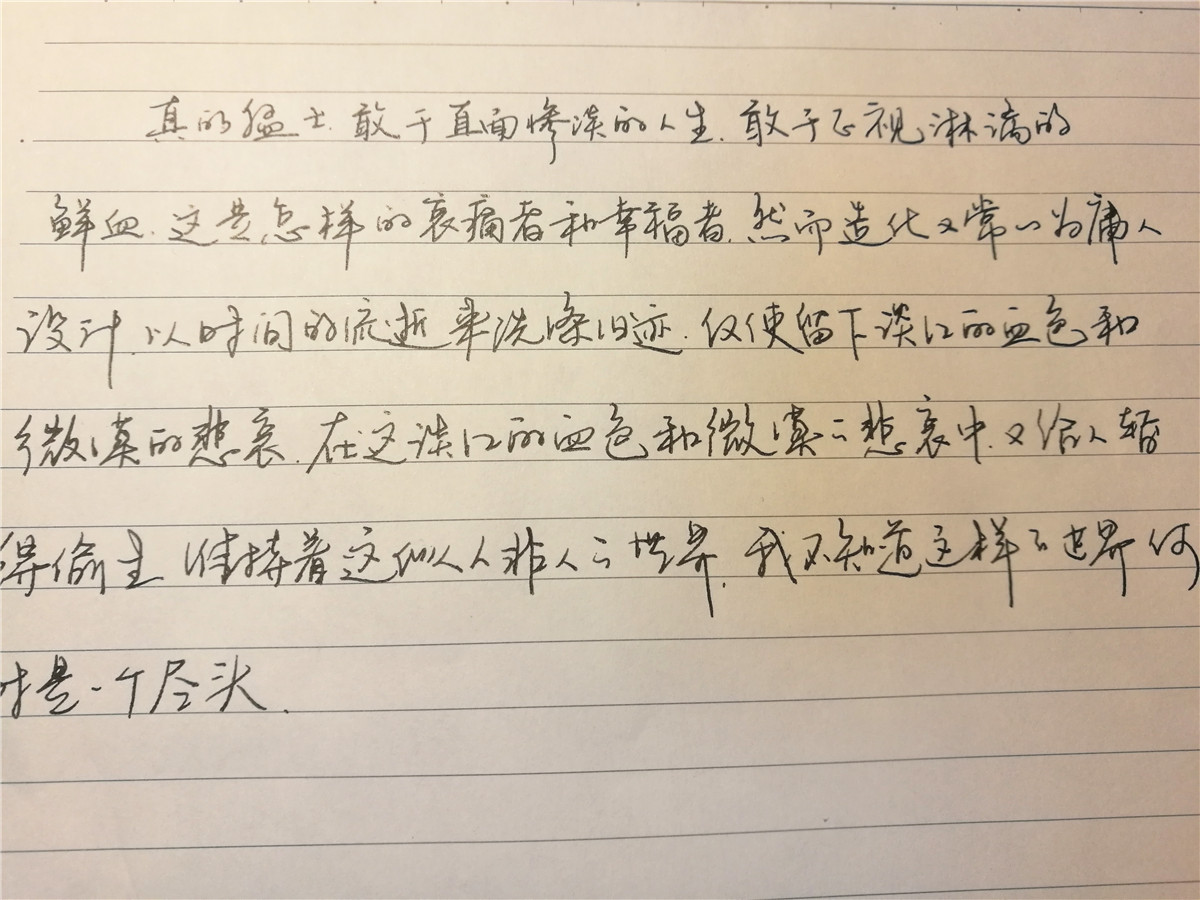 真的猛士.敢于直面惨淡的人生.敢于正视淋漓的
鲜血.这是怎样的哀痛者和幸福者.然而造化又常以为庸人
设计.以时间的流逝来洗涤旧迹.仅使留下淡红的血色和
微漠的悲哀.在这淡红的血色和微漠的悲哀中.又给人暂
得偷生 维持着这似人非人的世界.我不知道这样的世界何
时是一个尽头.